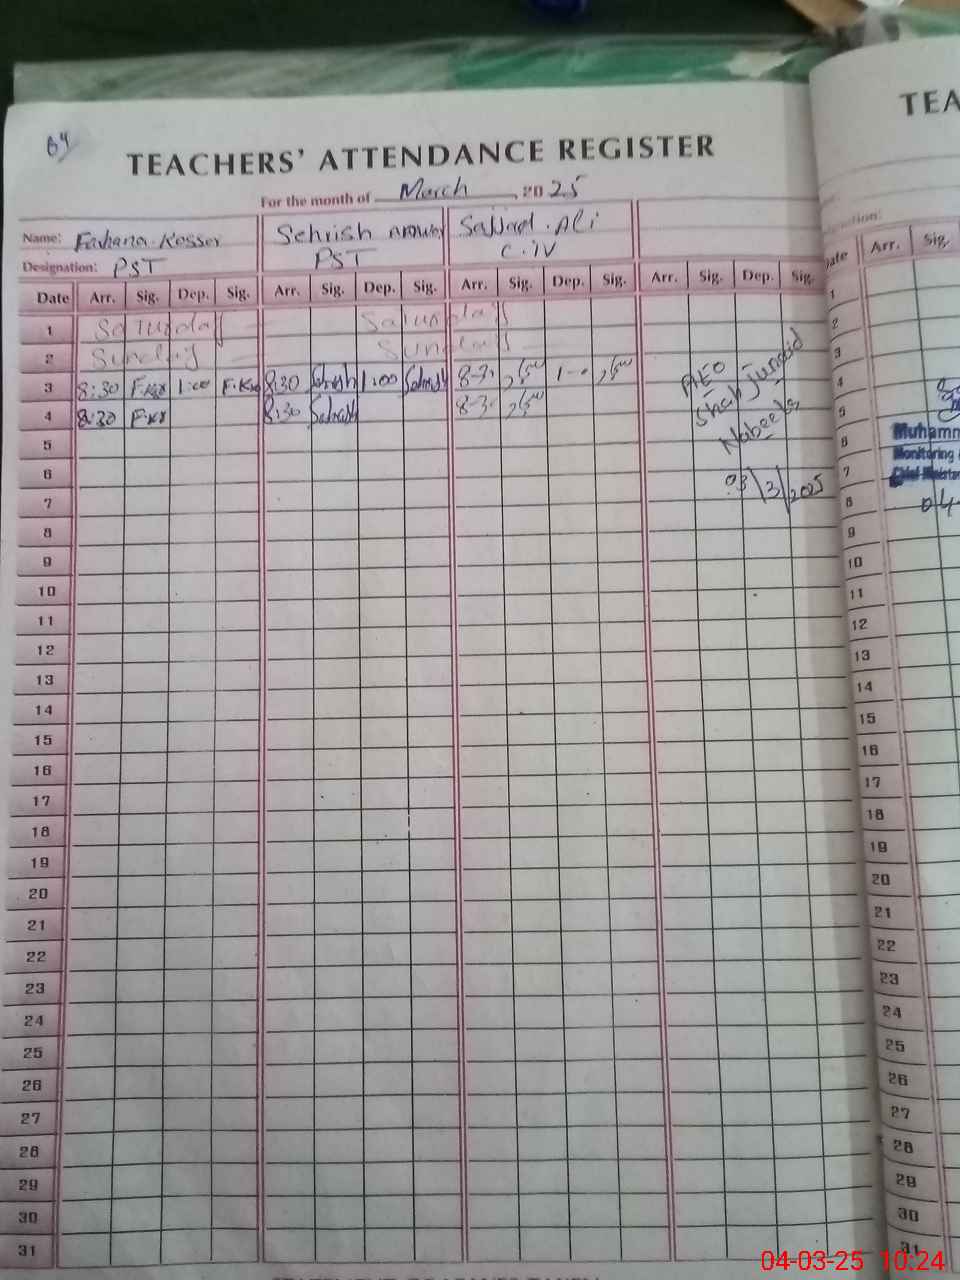 64
TEACHERS' ATTENDANCE REGISTER
For the month of March 2025
Name: Farhana Kosser Sehrish Sajjad Ali
Designation: PST PST C.IV
Date Arr. Sig. Dep. Sig. Arr. Sig. Dep. Sig. Arr. Sig. Dep. Sig. Arr. Sig. Dep. Sig.
1 Saturday Saturday
2 Sunday Sunday
3 8:30 1:00 8:30 Sehrish 1:00 Sehrish 8-30 1-0
4 8:30 8:30 Sehrish 8-30
5
6
7
8
9
10
11
12
13
14
15
16
17
18
19
20
21
22
23
24
25
26
27
28
29
30
31
AEO
Shah Junaid
Nabeela
03/3/2025
TEA
tion:
ate Arr. Sig.
1
2
3
4
5
6
7
8
9
10
11
12
13
14
15
16
17
18
19
20
21
22
23
24
25
26
27
28
29
30
31
Muhamm
Monitoring
04-
04-03-25 10:24